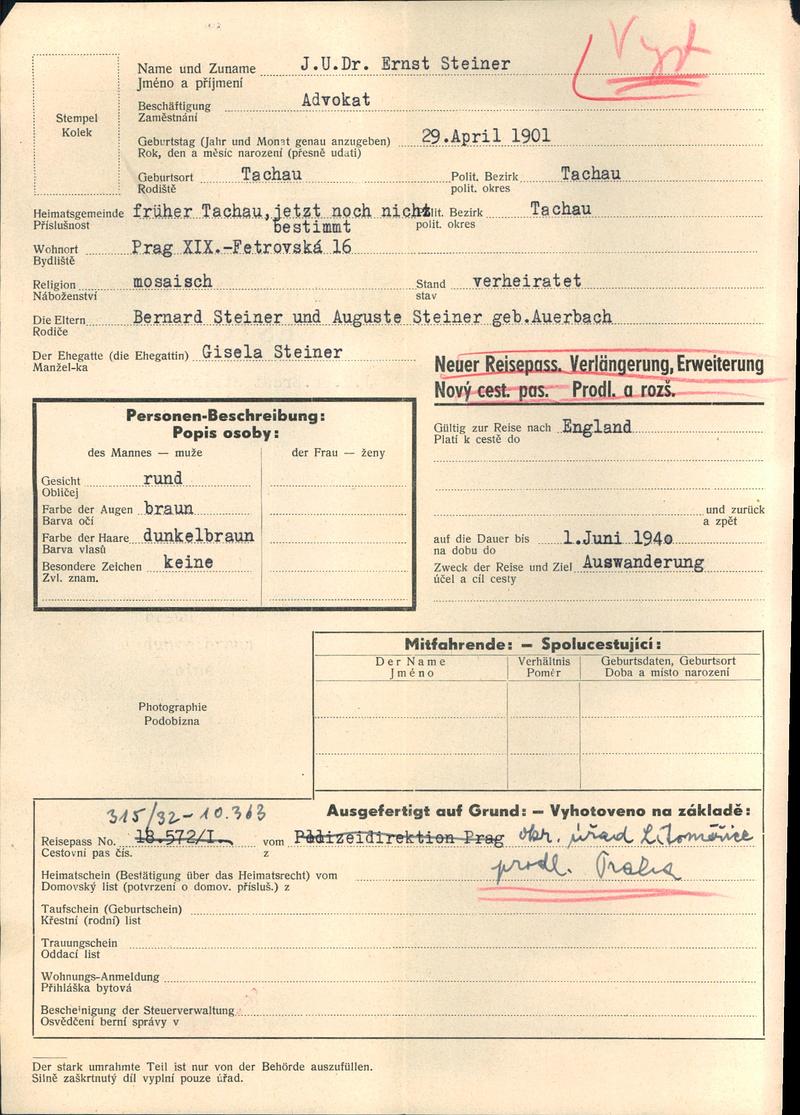 Vyst
Stempel
Kolek
Name und Zuname J.U.Dr. Ernst Steiner
Jméno a příjmení
Beschäftigung Advokat
Zaměstnání
Geburtstag (Jahr und Monat genau anzugeben) 29.April 1901
Rok, den a měsíc narození (přesně udati)
Geburtsort Tachau Polit. Bezirk Tachau
Rodiště polit. okres
Heimatsgemeinde früher Tachau, jetzt noch nicht Polit. Bezirk Tachau
Příslušnost bestimmt polit. okres
Wohnort Prag XIX.-Fetrovská 16
Bydliště
Religion mosaisch Stand verheiratet
Náboženství stav
Die Eltern Bernard Steiner und Auguste Steiner geb.Auerbach
Rodiče
Der Ehegatte (die Ehegattin) Gisela Steiner
Manžel-ka
Neuer Reisepass. Verlängerung, Erweiterung
Nový cest. pas. Prodl. a rozš.
Personen-Beschreibung:
Popis osoby:
des Mannes — muže der Frau — ženy
Gesicht rund
Obličej
Farbe der Augen braun
Barva očí
Farbe der Haare dunkelbraun
Barva vlasů
Besondere Zeichen keine
Zvl. znam.
Gültig zur Reise nach England
Platí k cestě do
und zurück
a zpět
auf die Dauer bis 1.Juni 1940
na dobu do
Zweck der Reise und Ziel Auswanderung
účel a cíl cesty
Mitfahrende: — Spolucestující:
Der Name Verhältnis Geburtsdaten, Geburtsort
Jméno Poměr Doba a místo narození
Photographie
Podobizna
315/32-10.363 Ausgefertigt auf Grund: — Vyhotoveno na základě:
Reisepass No. 18.572/I. vom Polizeidirektion Prag okr. úřad Litoměřice
Cestovní pas čís. z
prodl. Praha
Heimatschein (Bestätigung über das Heimatsrecht) vom
Domovský list (potvrzení o domov. přísluš.) z
Taufschein (Geburtschein)
Křestní (rodní) list
Trauungschein
Oddací list
Wohnungs-Anmeldung
Přihláška bytová
Bescheinigung der Steuerverwaltung
Osvědčení berní správy v
Der stark umrahmte Teil ist nur von der Behörde auszufüllen.
Silně zaškrtnutý díl vyplní pouze úřad.